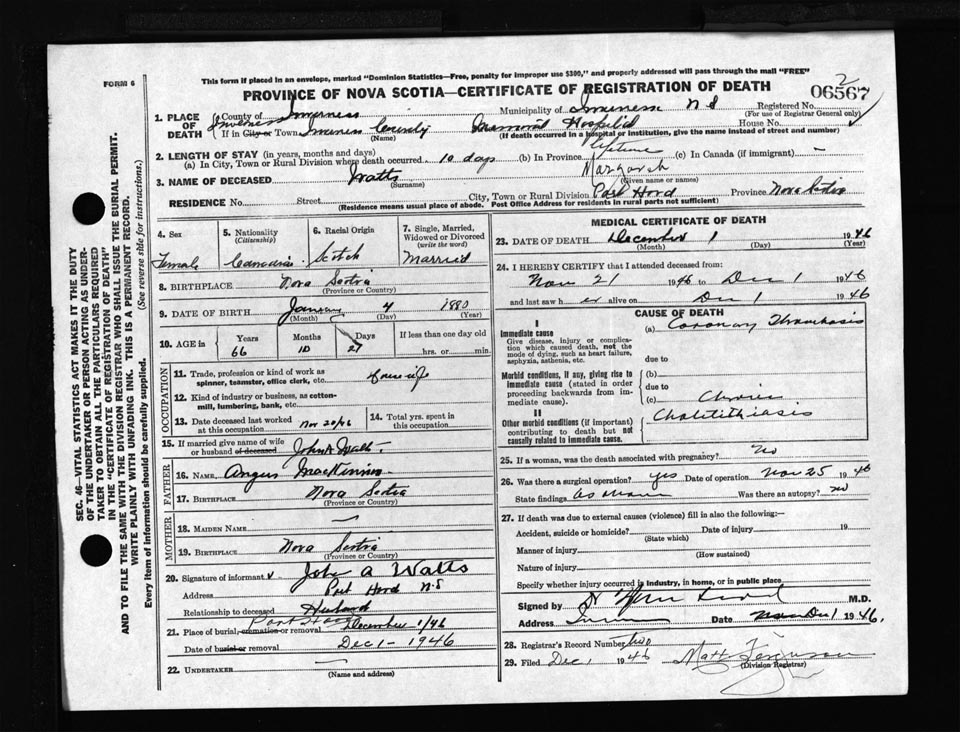 2
FORM 6
This form if placed in an envelope, marked "Dominion Statistics—Free, penalty for improper use $300," and properly addressed will pass through the mail "FREE"
06567
PROVINCE OF NOVA SCOTIA—CERTIFICATE OF REGISTRATION OF DEATH
1. PLACE OF DEATH
County of Inverness Municipality of Inverness N S Registered No.
(For use of Registrar General only)
If in City or Town Inverness County Memorial Hospital House No.
(Name) (If death occurred in a hospital or institution, give the name instead of street and number)
2. LENGTH OF STAY (in years, months and days)
(a) In City, Town or Rural Division where death occurred 10 days (b) In Province lifetime (c) In Canada (if immigrant) —
3. NAME OF DECEASED Watts Margaret
(Surname) (Given name or names)
RESIDENCE No. Street City, Town or Rural Division Port Hood Province Nova Scotia
(Residence means usual place of abode. Post Office Address for residents in rural parts not sufficient)
4. Sex
Female
5. Nationality
(Citizenship)
Canadian
6. Racial Origin
Scotch
7. Single, Married, Widowed or Divorced
(write the word)
Married
8. BIRTHPLACE Nova Scotia
(Province or Country)
9. DATE OF BIRTH January 4 1880
(Month) (Day) (Year)
10. AGE in
Years Months Days If less than one day old
66 10 27 hrs. or min.
OCCUPATION
11. Trade, profession or kind of work as spinner, teamster, office clerk, etc. housewife
12. Kind of industry or business, as cotton-mill, lumbering, bank, etc.
13. Date deceased last worked at this occupation Nov 20/46
14. Total yrs. spent in this occupation
15. If married give name of wife or husband of deceased John A Watts
FATHER
16. Name Angus MacKinnon
17. Birthplace Nova Scotia
(Province or Country)
MOTHER
18. MAIDEN NAME —
19. BIRTHPLACE Nova Scotia
(Province or Country)
20. Signature of informant John A Watts
Address Port Hood N S
Relationship to deceased Husband
21. Place of burial, cremation or removal December 1/46
Date of burial or removal Dec 1 - 1946
22. UNDERTAKER —
(Name and address)
MEDICAL CERTIFICATE OF DEATH
23. DATE OF DEATH December 1 1946
(Month) (Day) (Year)
24. I HEREBY CERTIFY that I attended deceased from:
Nov 21 1946 to Dec 1 1946
and last saw h er alive on Dec 1 1946
CAUSE OF DEATH
I
Immediate cause
Give disease, injury or complication which caused death, not the mode of dying, such as heart failure, asphyxia, asthenia, etc.
(a) Coronary Thrombosis
due to
Morbid conditions, if any, giving rise to immediate cause (stated in order proceeding backwards from immediate cause).
(b)
due to
(c)
II
Other morbid conditions (if important) contributing to death but not causally related to immediate cause.
Chronic
Cholelithiasis
25. If a woman, was the death associated with pregnancy? No
26. Was there a surgical operation? yes Date of operation Nov 25 1946
State findings as above Was there an autopsy? no
27. If death was due to external causes (violence) fill in also the following:—
Accident, suicide or homicide? Date of injury 19
(State which)
Manner of injury
(How sustained)
Nature of injury
Specify whether injury occurred in industry, in home, or in public place
Signed by M.D.
Address Date Dec 1 1946.
28. Registrar's Record Number two
29. Filed Dec 1 1946 Matt Ferguson
(Division Registrar)
SEC. 46—VITAL STATISTICS ACT MAKES IT THE DUTY
OF THE UNDERTAKER OR PERSON ACTING AS UNDER-
TAKER TO OBTAIN ALL THE PARTICULARS REQUIRED
IN THE "CERTIFICATE OF REGISTRATION OF DEATH"
AND TO FILE THE SAME WITH THE DIVISION REGISTRAR WHO SHALL ISSUE THE BURIAL PERMIT.
WRITE PLAINLY WITH UNFADING INK. THIS IS A PERMANENT RECORD.
Every item of information should be carefully supplied. (See reverse side for instructions.)